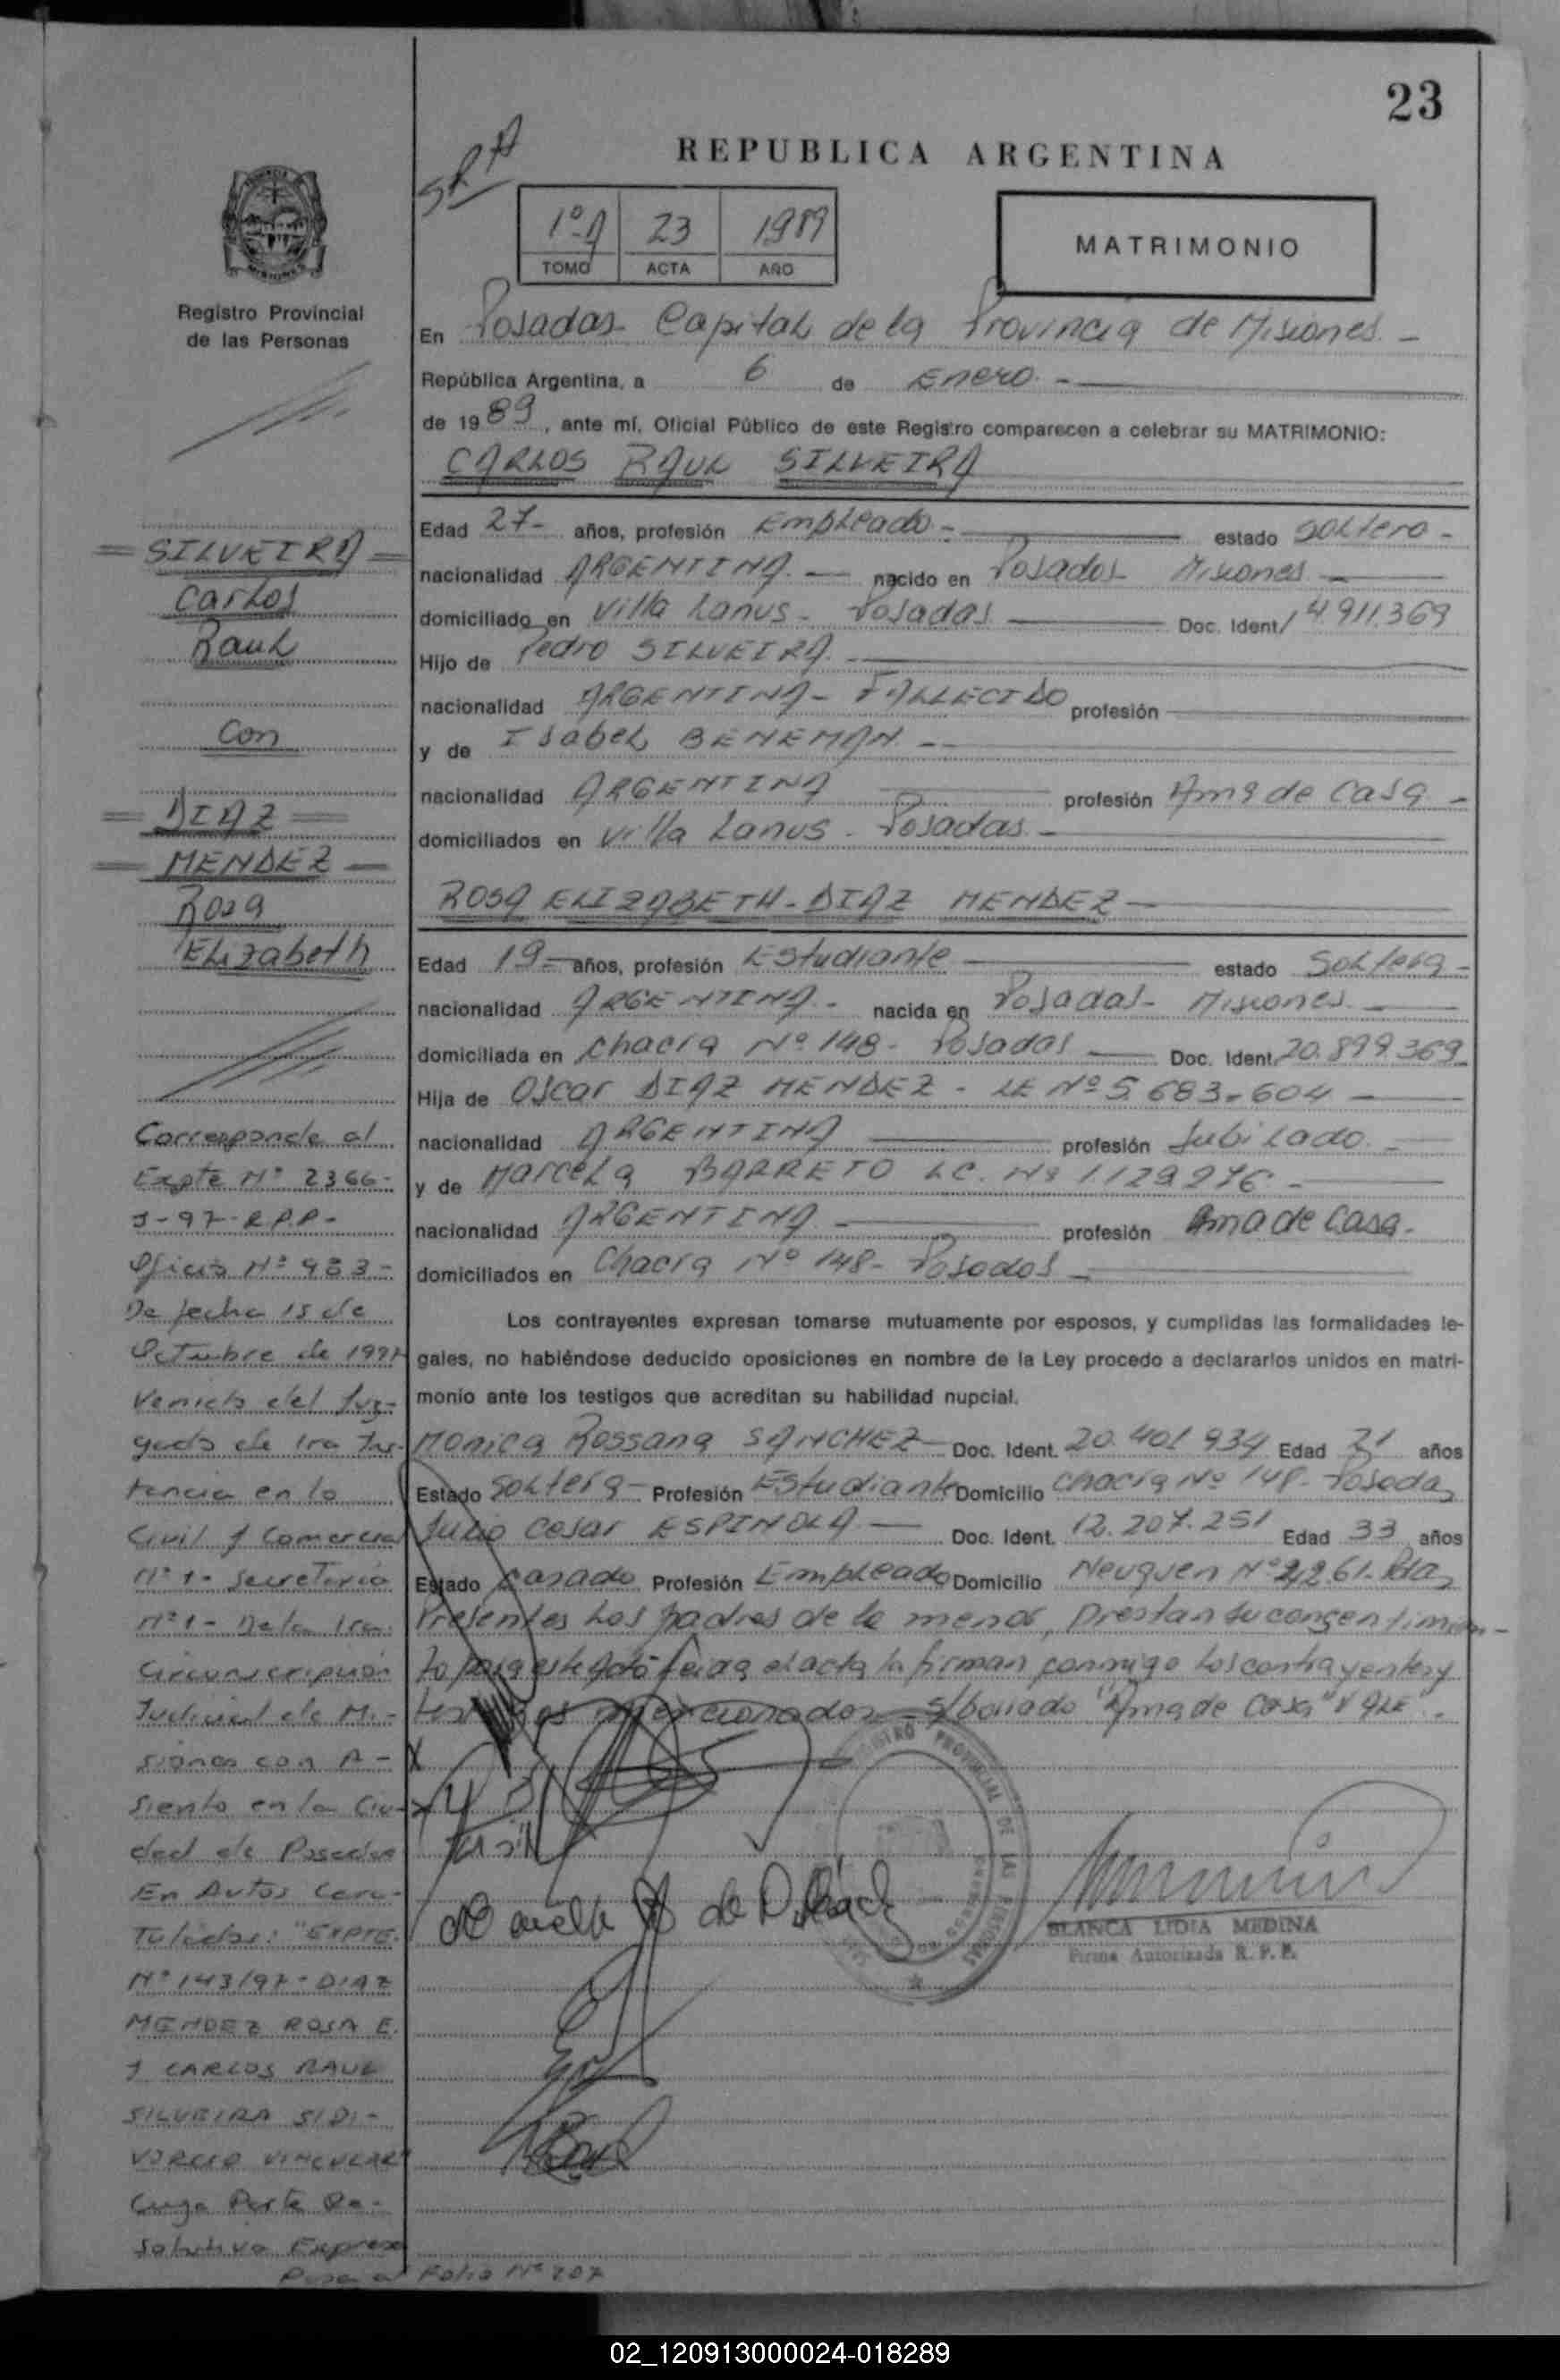 23
REPUBLICA ARGENTINA
SRA
1º A 23 1989
TOMO ACTA AÑO
MATRIMONIO
Registro Provincial
de las Personas
En Posadas Capital de la Provincia de Misiones -
República Argentina, a 6 de Enero -
de 1989, ante mí, Oficial Público de este Registro comparecen a celebrar su MATRIMONIO:
CARLOS RAUL SILVEIRA
Edad 27- años, profesión Empleado - estado soltero -
nacionalidad ARGENTINA - nacido en Posadas Misiones -
domiciliado en Villa Lanus - Posadas Doc. Ident/ 4.911.369
Hijo de Pedro SILVEIRA -
nacionalidad ARGENTINA - FALLECIDO profesión
y de Isabel BENEMAN -
nacionalidad ARGENTINA profesión Ama de Casa -
domiciliados en Villa Lanus - Posadas -
ROSA ELIZABETH - DIAZ MENDEZ -
Edad 19- años, profesión Estudiante estado Soltera -
nacionalidad ARGENTINA - nacida en Posadas - Misiones
domiciliada en Chacra Nº 148 - Posadas Doc. Ident. 20.899.369
Hija de Oscar DIAZ MENDEZ - LE Nº 5.683.604
nacionalidad ARGENTINA profesión Jubilado -
y de Marcela BARRETO LC. Nº 1129976 -
nacionalidad ARGENTINA profesión Ama de Casa -
domiciliados en Chacra Nº 148 - Posadas -
Los contrayentes expresan tomarse mutuamente por esposos, y cumplidas las formalidades le-
gales, no habiéndose deducido oposiciones en nombre de la Ley procedo a declararlos unidos en matri-
monio ante los testigos que acreditan su habilidad nupcial.
Monica Rossana SANCHEZ Doc. Ident. 20.401.934 Edad 21 años
Estado Soltera Profesión Estudiante Domicilio Chacra Nº 148 - Posadas
Julio Cesar ESPINOLA - Doc. Ident. 12.207.251 Edad 33 años
Estado Casado Profesión Empleado Domicilio Neuquen Nº 2261. Pdas
Presentes los padres de la menor, prestan su consentimien-
to para este acto leida el acta la firman conmigo los contrayentes y
testigos mencionados - s/borrado "Ama de Casa"
BLANCA LIDIA MEDINA
Firma Autorizada R. P. P.
REGISTRO PROVINCIAL DE LAS PERSONAS
= SILVEIRA =
Carlos
Raul
Con
= DIAZ =
= MENDEZ =
Rosa
Elizabeth
Corresponde al
Expte Nº 2366-
S-97-R.P.P-
Oficio Nº 983-
De fecha 15 de
Octubre de 1997
Venido del Juz-
gado de 1ra Ins-
tancia en lo
Civil y Comercial
Nº 1- Secretaria
Nº 1- De la 1ra
Circunscripción
Judicial de Mi-
siones con A-
siento en la Ciu-
dad de Posadas
En Autos Cara-
tulados: "EXPTE.
Nº 143/97-DIAZ
MENDEZ ROSA E.
Y CARLOS RAUL
SILVEIRA S/DI-
VORCIO VINCULAR"
Cuya Parte Re-
solutiva Expresa
Pasa al Folio Nº 207
02_120913000024-018289